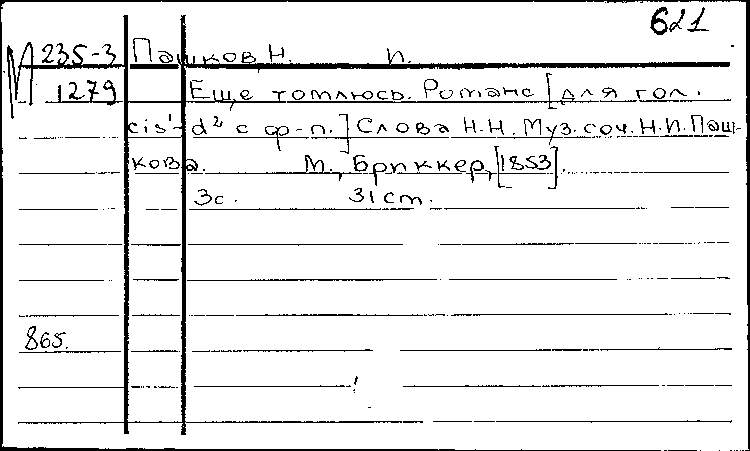 621
М 235-3 Пашков, Н. И.
1279 Еще томлюсь. Романс [для гол.
cis¹-d² с ф-п.] Слова Н.Н. Муз. соч. Н.И. Паш-
кова. М., Бриккер, [1853].
3с. 31 cm.
865.